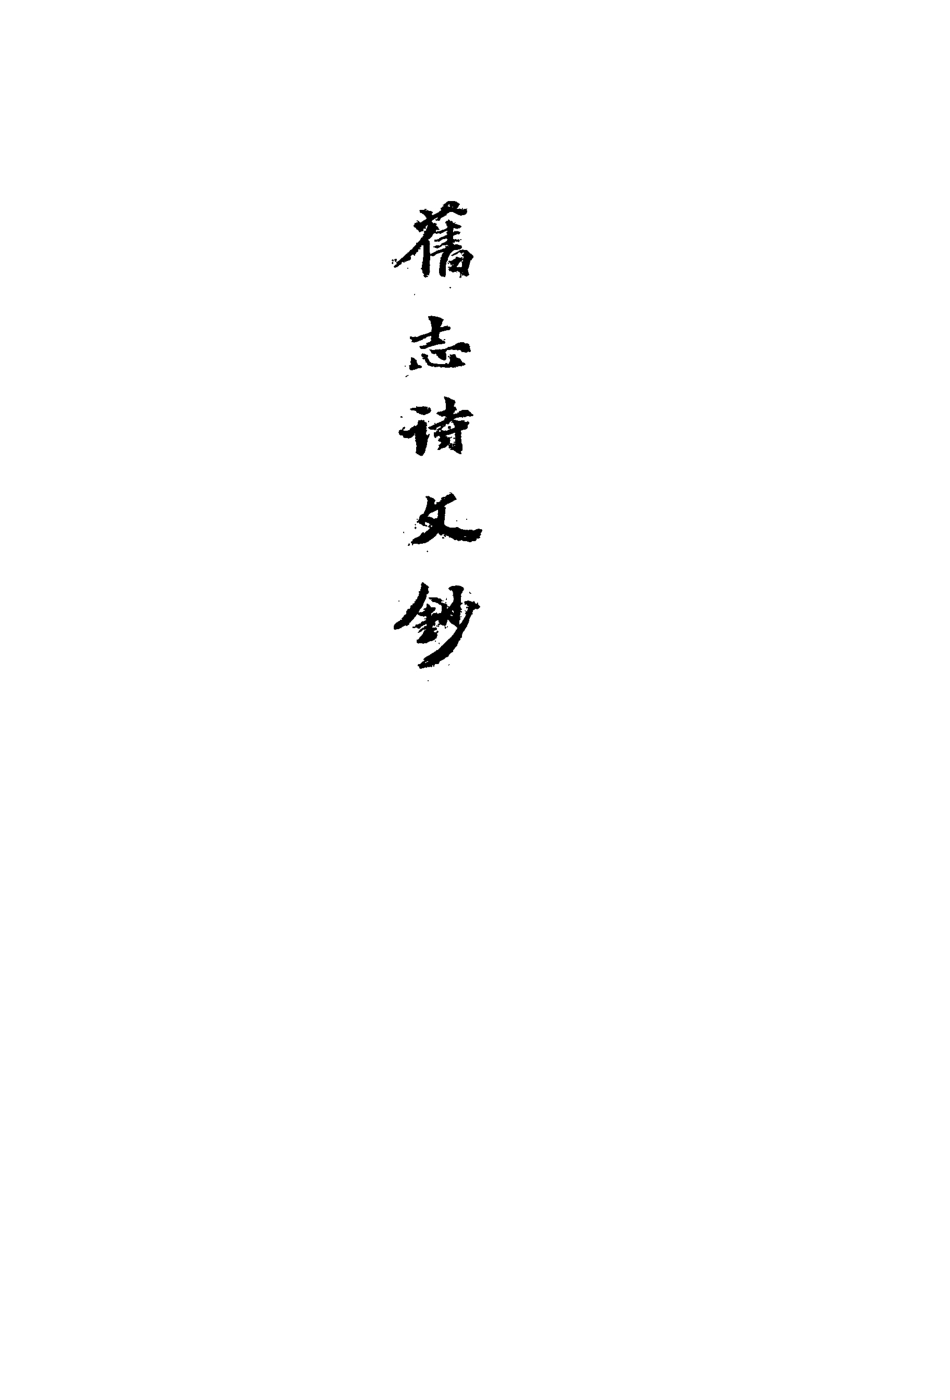 舊志诗文鈔